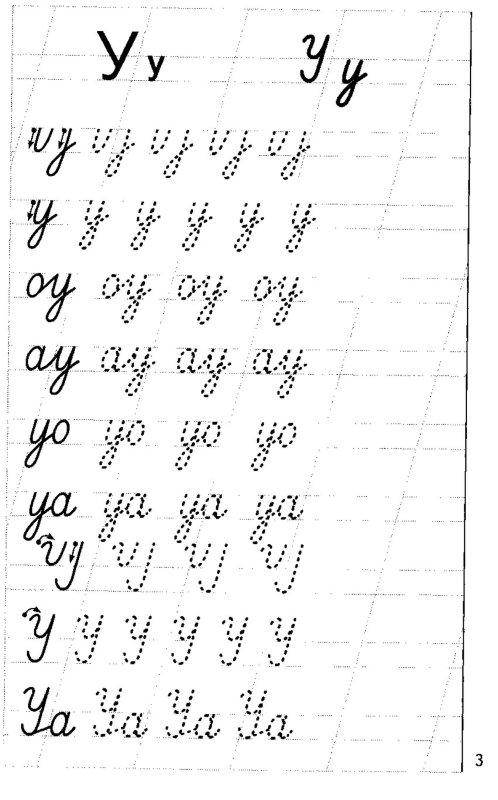 У у У у
у у у у у
у у у у у
оу оу оу оу
ау ау ау ау
уо уо уо уо
уа уа уа уа
У У У У
У У У У У У
Уа Уа Уа Уа
3